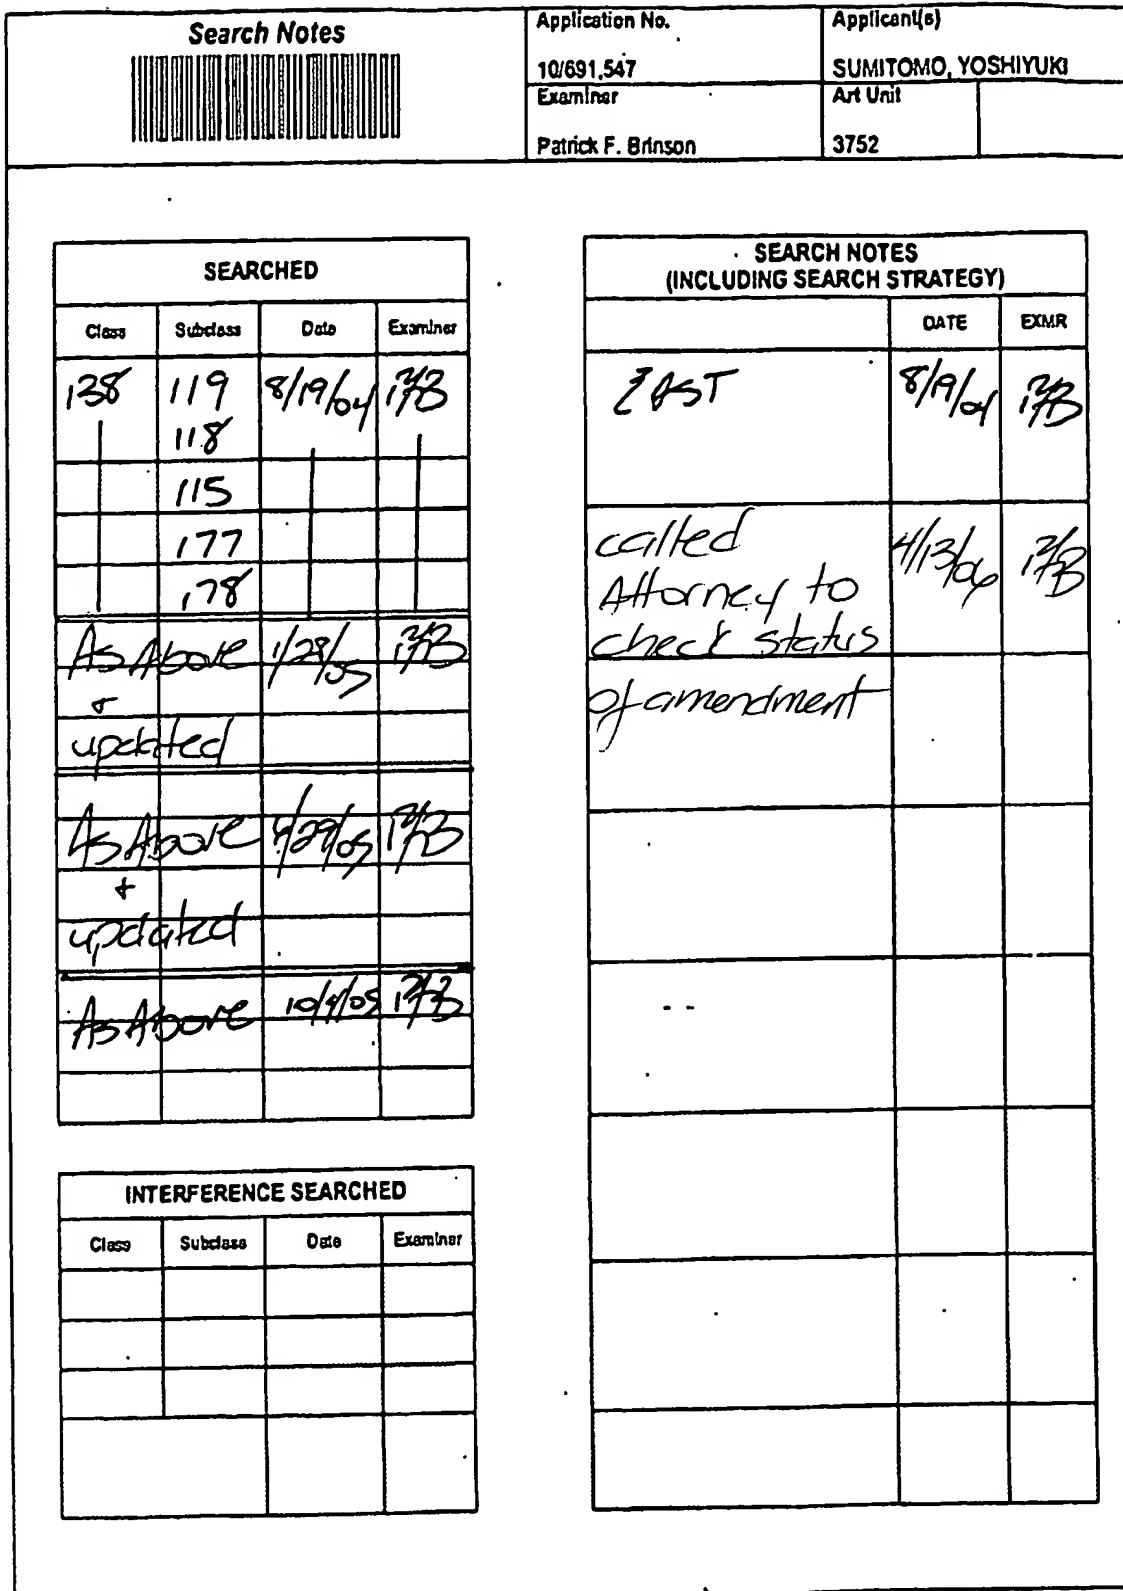 Search Notes
Application No.
Applicant(s)
10/691,547
SUMITOMO, YOSHIYUKI
Examiner
Art Unit
Patrick F. Brinson
3752
SEARCHED
Class Subclass Date Examiner
138 119 8/19/04 PFB
118
115
177
178
As Above 1/28/05 PFB
&
updated
As Above /29/05 PFB
&
updated
As Above 10/4/05 PFB
INTERFERENCE SEARCHED
Class Subclass Date Examiner
SEARCH NOTES
(INCLUDING SEARCH STRATEGY)
DATE EXMR
EAST 8/19/04 PFB
called 4/13/06 PFB
Attorney to
check status
of amendment